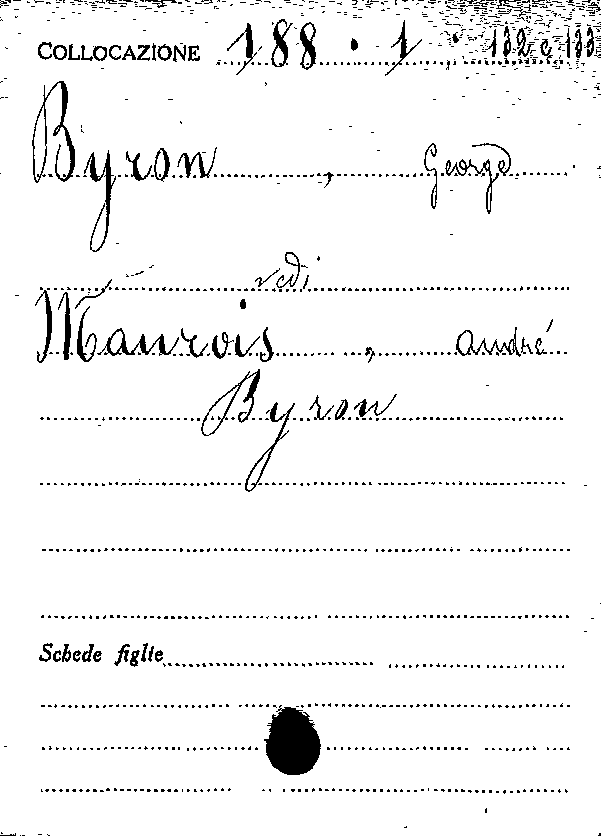 COLLOCAZIONE 188 . 1 . 132 e 133
Byron , George
vedi
Maurois , André
Byron
Schede figlie